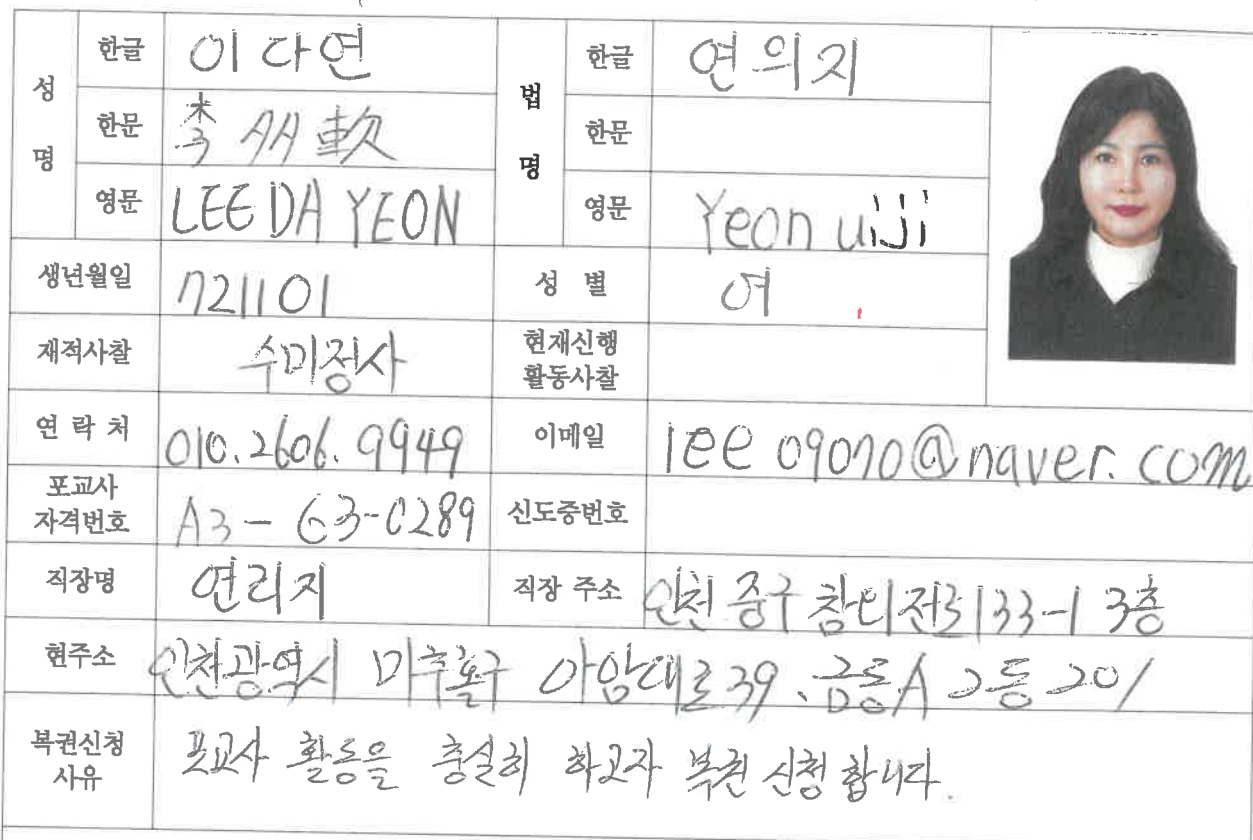 성명 한글 이다연 법명 한글 연의지
한문 李多軟 한문
영문 LEE DA YEON 영문 Yeon uiji
생년월일 721101 성 별 여
재적사찰 수미정사 현재신행 활동사찰
연 락 처 010.2606.9949 이메일 lee09070@naver.com
포교사 자격번호 A3-63-0289 신도증번호
직장명 연리지 직장 주소 인천 중구 참외전로133-1 3층
현주소 인천광역시 미추홀구 아암대로39. 금동A 2동 201
복권신청 사유 포교사 활동을 충실히 하고자 복권 신청합니다.